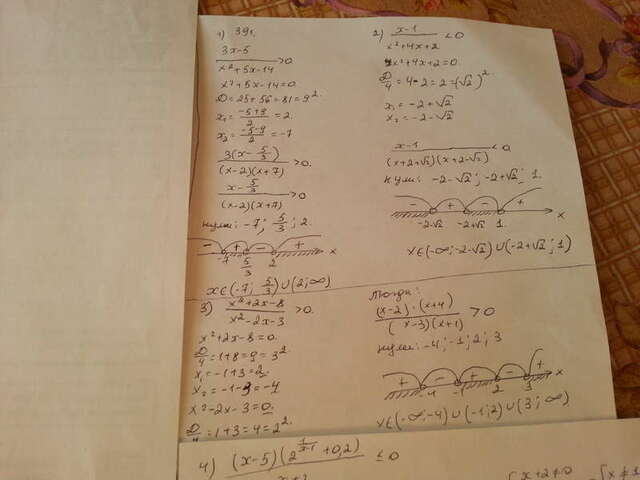 1) 391.
(3x-5)/(x²+5x-14) > 0
x²+5x-14=0
D=25+56=81=9²
x₁=(-5+9)/2=2.
x₂=(-5-9)/2=-7
3(x-5/3)/((x-2)(x+7)) > 0.
(x-5/3)/((x-2)(x+7)) > 0
нули: -7; 5/3; 2.
- + - +
-7 5/3 2 x
x∈(-7; 5/3)∪(2;∞)
2) (x-1)/(x²+4x+2) < 0
x²+4x+2=0.
D/4=4-2=2=(√2)²
x₁=-2+√2
x₂=-2-√2
(x-1)/((x+2+√2)(x+2-√2)) < 0
нули: -2-√2; -2+√2; 1.
- + - +
-2-√2 -2+√2 1. x
x∈(-∞;-2-√2)∪(-2+√2;1)
3) (x²+2x-8)/(x²-2x-3) > 0.
x²+2x-8=0.
D/4=1+8=9=3²
x₁=-1+3=2.
x₂=-1-3=-4
x²-2x-3=0.
D/4=1+3=4=2².
тогда:
(x-2)·(x+4)/((x-3)(x+1)) > 0
нули: -4; -1; 2; 3
+ - + - +
-4 -1 2 3 x
x∈(-∞;-4)∪(-1;2)∪(3;∞)
4) (x-5)(2^(1/(x-1))+0,2) ≤ 0
x+2≠0
x≠1